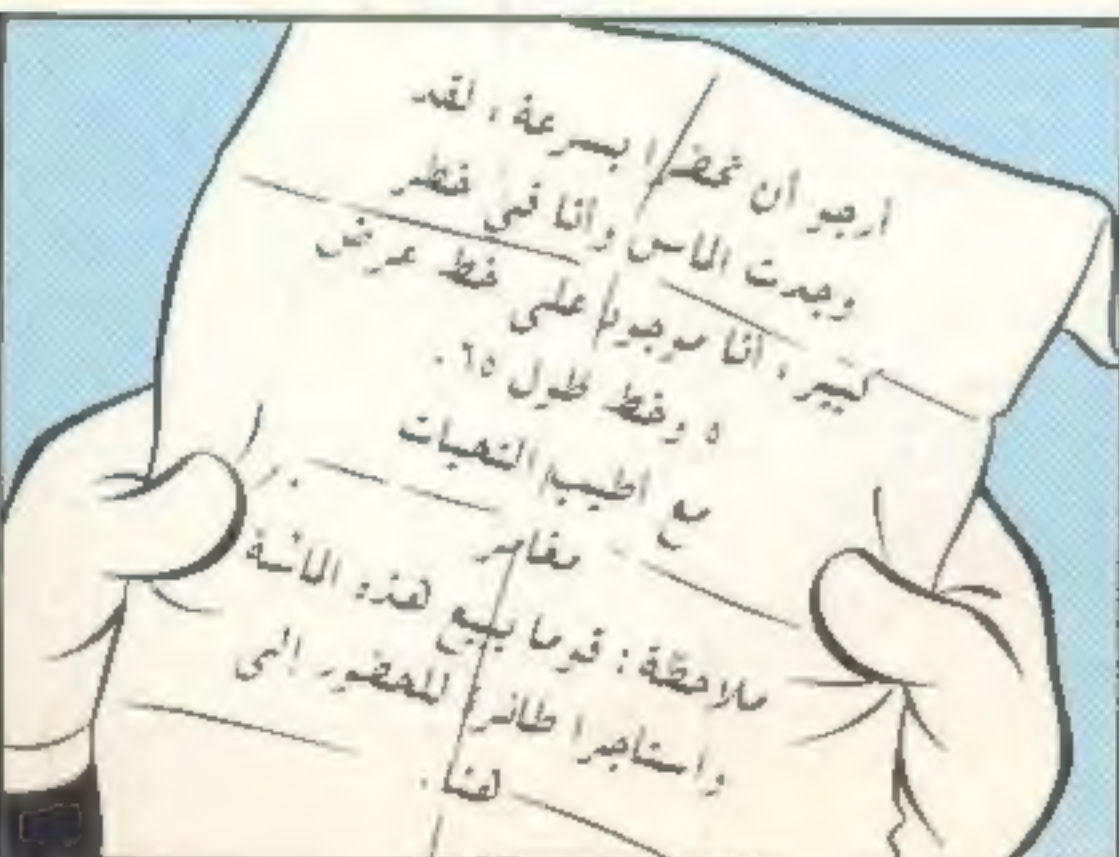 أرجو أن تحضرا بسرعة ، لقد
وجدت الماس وأنا في خطر
كبير ، أنا موجود على خط عرض
٥ وخط طول ٦٥ .
مع أطيب التحيات
مغامر
ملاحظة : قوما ببيع هذه الماسة
واستأجرا طائرة للحضور إلى
هنا .